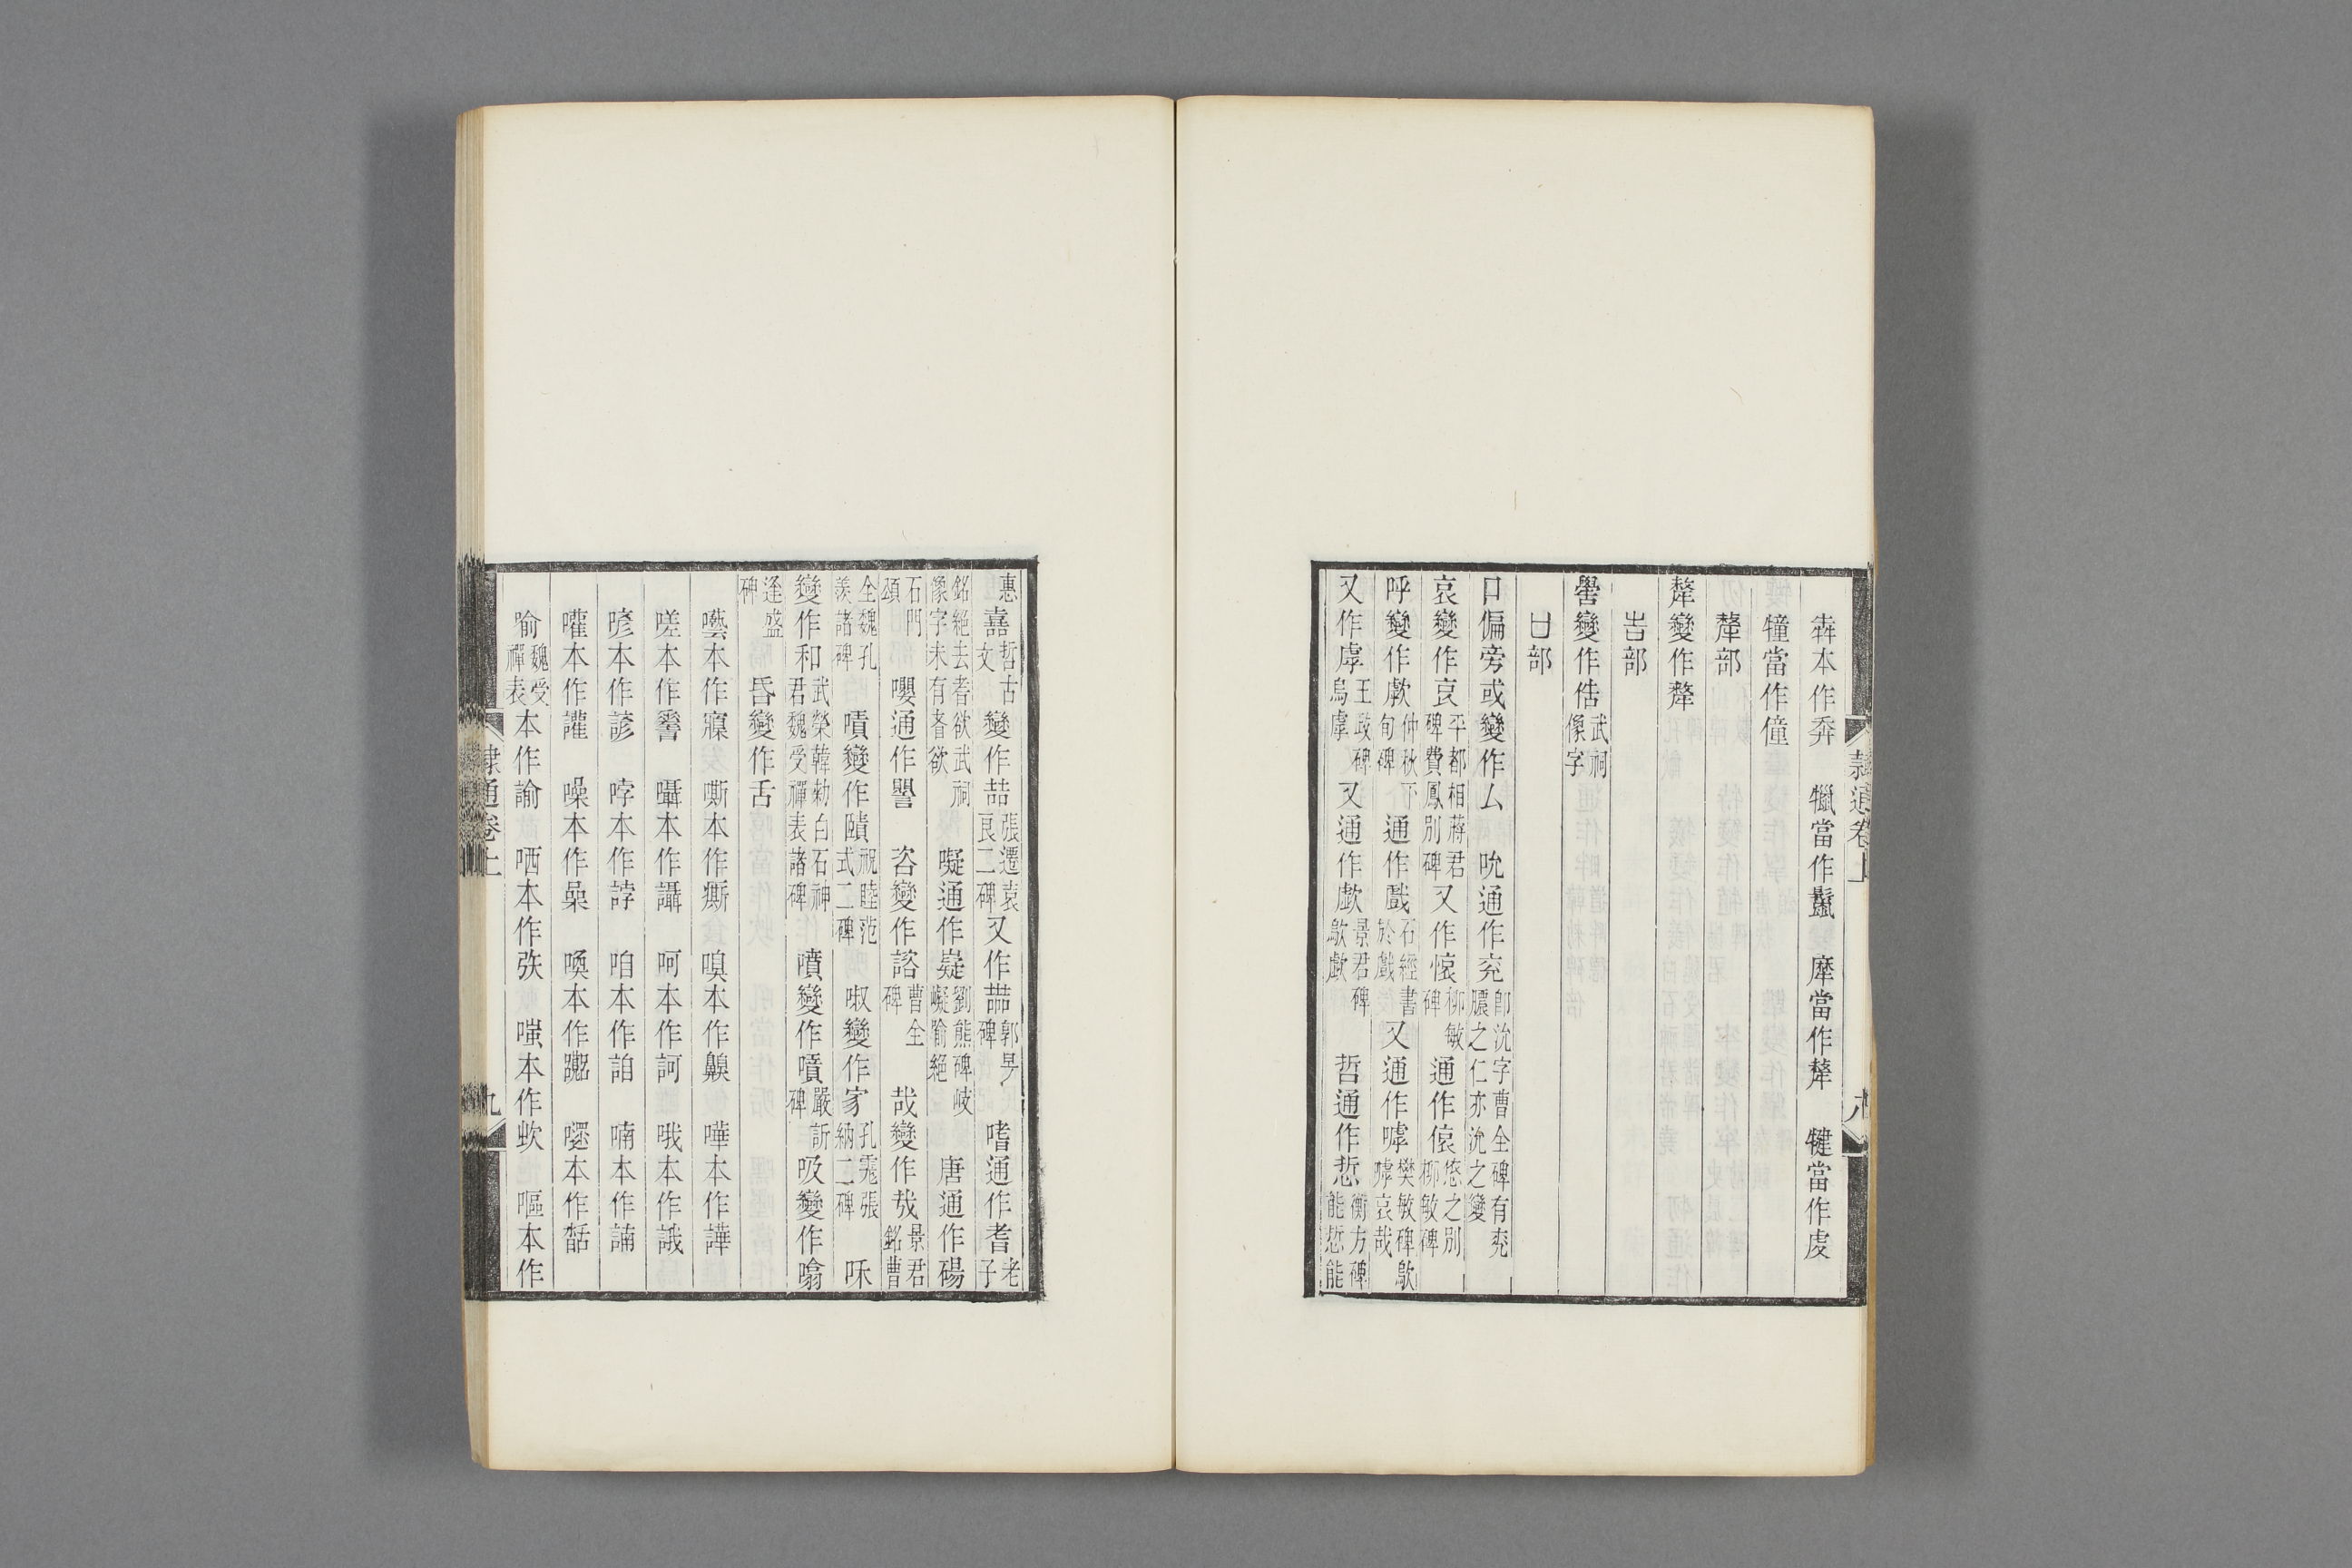 犇本作奔　犣當作鬣　犘當作犛　犍當作虔
犝當作僮
犛部
犛變作𣯛
告部
嚳變作俈武祠像字
口部
口偏旁或變作厶　吮通作兖卽沇字曹全碑有兖膿之仁亦沇之變
哀變作哀平都相蔣君碑費鳳別碑又作懷柳敏碑　通作偯悠之別柳敏碑
呼變作歑仲秋下旬碑　通作戲石經書於戲　又通作嘑樊敏碑歍嘑哀哉
又作虖王政碑烏虖　又通作歔景君碑歍歔　哲通作悊衡方碑能悊能
惠　嚞哲古文　變作喆張遷袁良二碑　又作嚞郭旻碑　嗜通作耆老子
銘絕去耆欲武祠像字未有耆欲　嚘通作嶷劉熊碑岐嶷踰絕　唐通作碭
石門頌　嚶通作譻　咨變作諮曹全碑　哉變作㦲景君銘曹
全魏孔羨諸碑　嘖變作賾祝睦范式二碑　啾變作家孔霓張納二碑　咊
變作和武榮韓勑白石神君魏受禪表諸碑　噴變作噴嚴訢碑　吸變作噏
逢盛碑　昏變作舌
囈本作寱　嘶本作㾷　嗅本作齅　嘩本作譁
嗟本作𧪯　囁本作讘　呵本作訶　哦本作誐
喭本作諺　哱本作誖　咱本作䛗　喃本作諵
嚾本作讙　噪本作喿　喚本作
喻魏受禪表本作諭　哂本作弞　嗤本作蚩　嘔本作
隸通卷上　八
隸通卷上　九